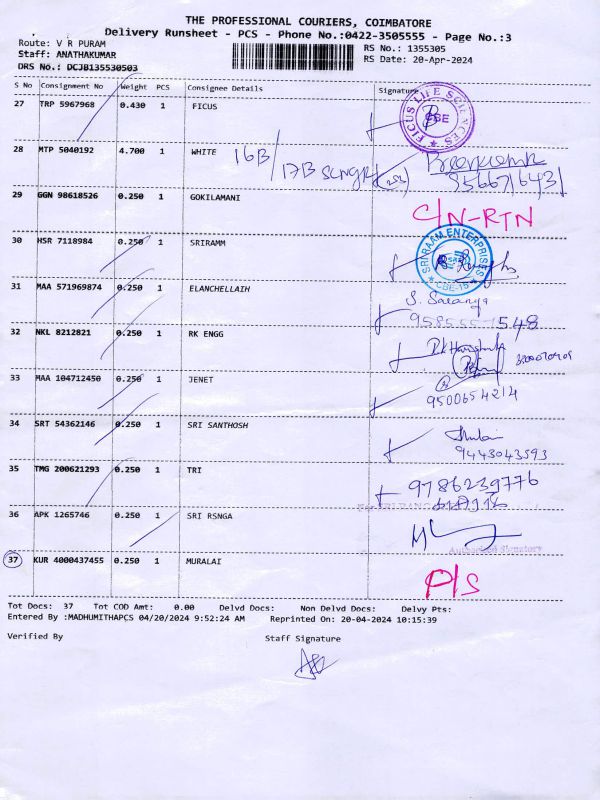 THE PROFESSIONAL COURIERS, COIMBATORE
Delivery Runsheet - PCS - Phone No.:0422-3505555 - Page No.:3
Route: V R PURAM
RS No.: 1355305
Staff: ANATHAKUMAR
RS Date: 20-Apr-2024
DRS No.: DCJB135530503
S No Consignment No Weight PCS Consignee Details Signature
27 TRP 5967968 0.430 1 FICUS
FICUS LIFE SCIENCES CBE
28 MTP 5040192 4.700 1 WHITE 16B/
17B
9566716431
29 GGN 98618526 0.250 1 GOKILAMANI C/N-RTN
30 HSR 7118984 0.250 1 SRIRAMM
SRIRAAM ENTERPRISES CBE-15
31 MAA 571969874 0.250 1 ELANCHELLAIH S. Saranya
32 NKL 8212821 0.250 1 RK ENGG
33 MAA 104712450 0.250 1 JENET
9500654214
34 SRT 54362146 0.250 1 SRI SANTHOSH
9443043593
35 TMG 200621293 0.250 1 TRI 9786239776
36 APK 1265746 0.250 1 SRI RSNGA
Authorised Signatory
37 KUR 4000437455 0.250 1 MURALAI P/S
Tot Docs: 37 Tot COD Amt: 0.00 Delvd Docs: Non Delvd Docs: Delvy Pts:
Entered By :MADHUMITHAPCS 04/20/2024 9:52:24 AM Reprinted On: 20-04-2024 10:15:39
Verified By Staff Signature